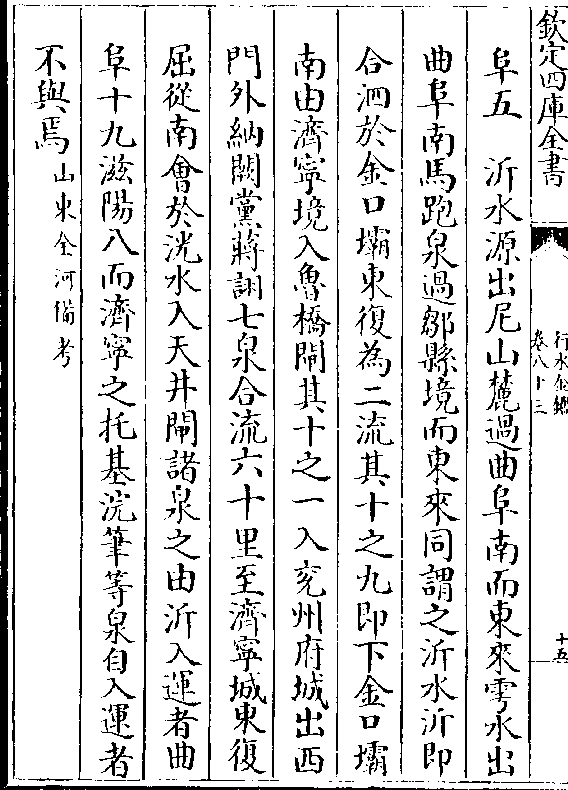 欽定四庫全書
行水金鑑
卷八十三
十五
阜五　沂水源出尼山麓過曲阜南而東來雩水出
曲阜南馬跑泉過鄒縣境而東來同謂之沂水沂即
合泗於金口壩東復為二流其十之九即下金口壩
南由濟寧境入魯橋閘其十之一入兗州府城出西
門外納闕黨蔣詡七泉合流六十里至濟寧城東復
屈從南會於洸水入天井閘諸泉之由沂入運者曲
阜十九滋陽八而濟寧之托基浣筆等泉自入運者
不與焉山東全河備考